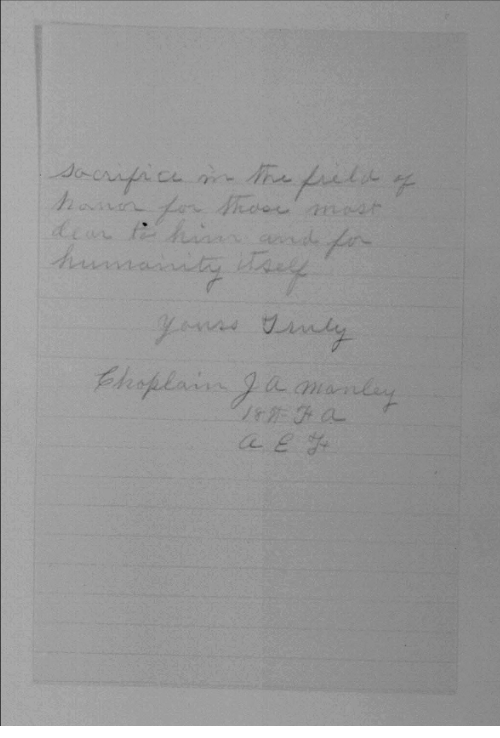 sacrifice in the field of
honor for those most
dear to him and for
humanity itself
Yours Truly
Chaplain J A Manley
18th F A
A E F